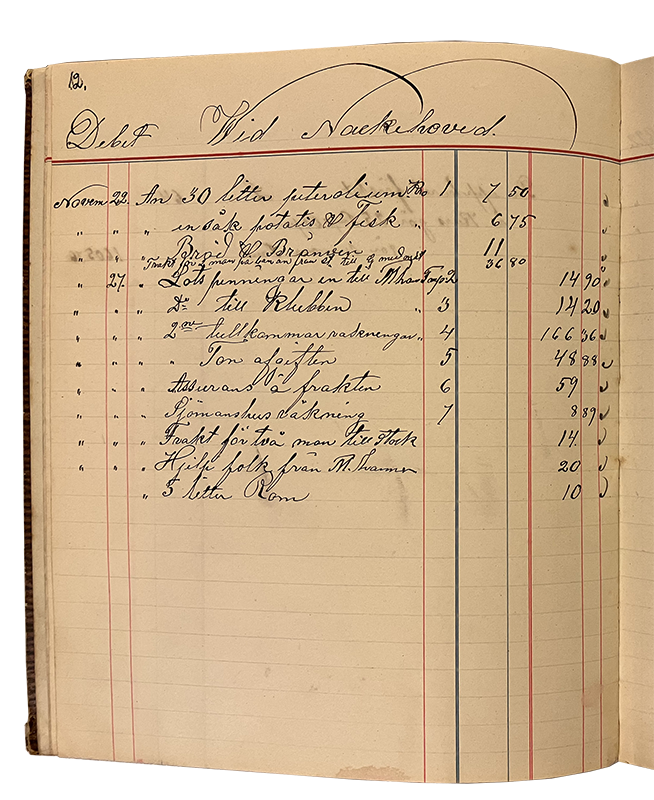 12.
Debet Wid Nackehoved.
Novem 22. An 30 letter peterolium. No 1 7 50
" " " en säk potatis & Fisk " 6 75
" " " Bröd & Bränsen 11
Frakt för 2 man på från till med 36 80
" 27. " Lotspenningar en till 2 14 90
" " " Do till Klubben " 3 14 20
" " " 2ne tullkammar räkningar " 4 166 36
" " " " Ton afgiften 5 48 88
" " " Assurans å frakten 6 59
" " " Sjömanshus räkning 7 8 89
" " " Frakt för två man till stock 14.
" " " Hjelp folk från M. 20
" 5 letter Rom 10